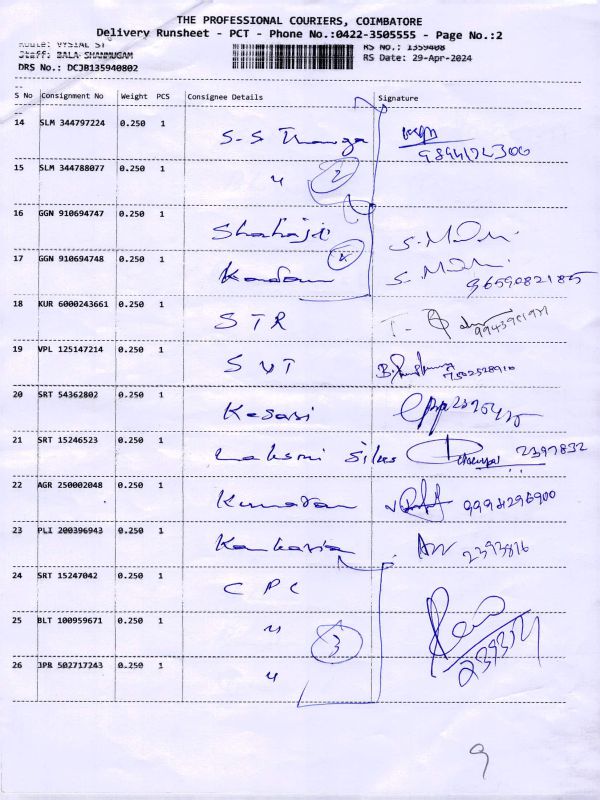 THE PROFESSIONAL COURIERS, COIMBATORE
Delivery Runsheet - PCT - Phone No.:0422-3505555 - Page No.:2
Route: VYSIAL ST RS No.: 1359408
Staff: BALA SHANMUGAM RS Date: 29-Apr-2024
DRS No.: DCJB135940802
S No Consignment No Weight PCS Consignee Details Signature
14 SLM 344797224 0.250 1 S-S Thanga
15 SLM 344788077 0.250 1 " 2
16 GGN 910694747 0.250 1 Shahaji
17 GGN 910694748 0.250 1 Kadam 9659082185
18 KUR 6000243661 0.250 1 STR
19 VPL 125147214 0.250 1 SVT 7502528910
20 SRT 54362802 0.250 1 Kesari
21 SRT 15246523 0.250 1 Laksmi Silks 2397832
22 AGR 250002048 0.250 1 Kumaran
23 PLI 200396943 0.250 1 Kankaria 2393816
24 SRT 15247042 0.250 1 CPC
25 BLT 100959671 0.250 1 " 3
26 JPR 502717243 0.250 1 "
9